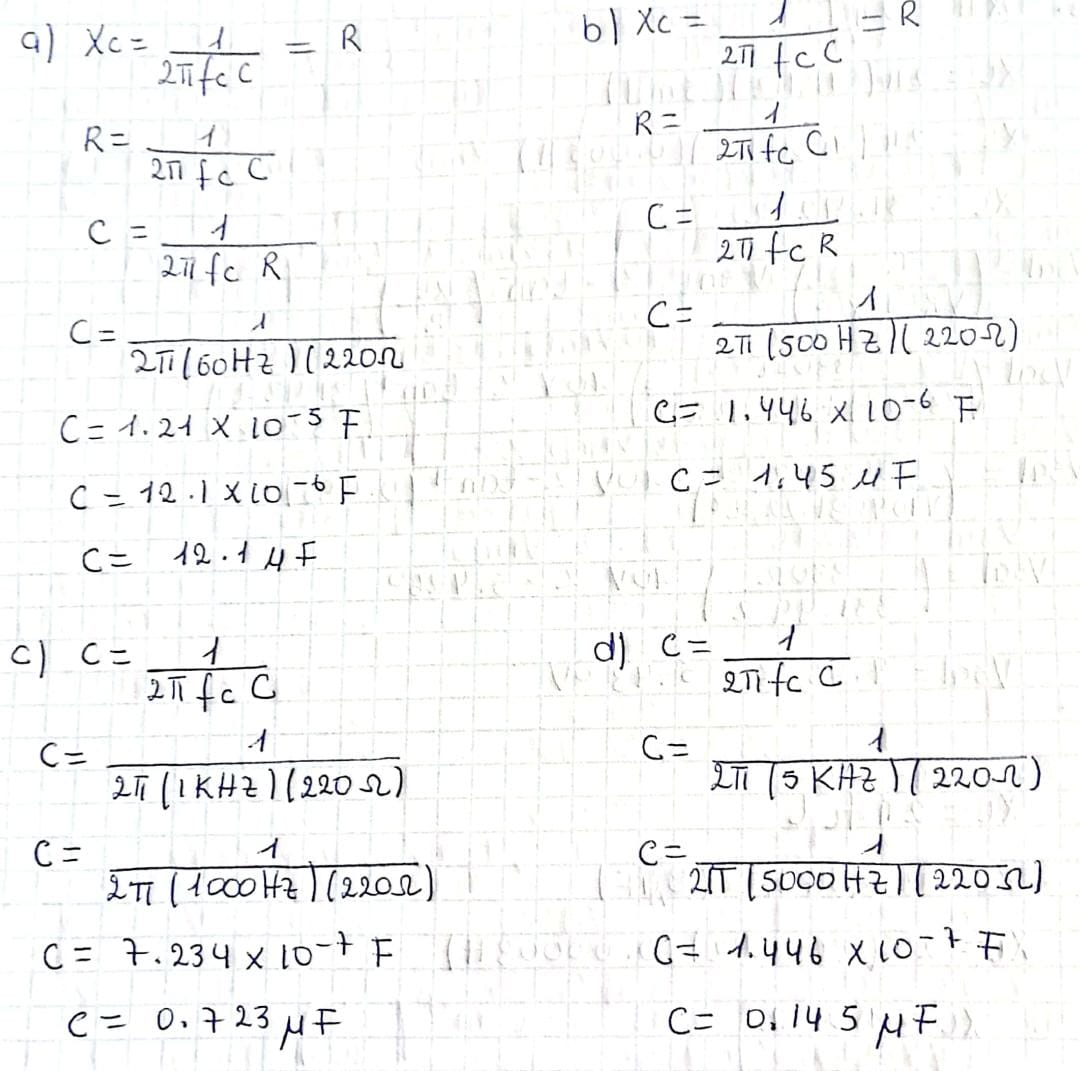 a) Xc = 1 / 2π fc C = R
R = 1 / 2π fc C
C = 1 / 2π fc R
C = 1 / 2π (60HZ) (220Ω
C = 1.21 x 10⁻⁵ F
C = 12.1 x 10⁻⁶ F
C = 12.1 μF
b) Xc = 1 / 2π fc C = R
R = 1 / 2π fc C
C = 1 / 2π fc R
C = 1 / 2π (500 HZ) (220Ω)
C = 1.446 x 10⁻⁶ F
C = 1.45 μF
c) C = 1 / 2π fc C
C = 1 / 2π (1KHZ) (220Ω)
C = 1 / 2π (1000HZ) (220Ω)
C = 7.234 x 10⁻⁷ F
C = 0.723 μF
d) C = 1 / 2π fc C
C = 1 / 2π (5 KHZ) (220Ω)
C = 1 / 2π (5000HZ) (220Ω)
C = 1.446 x 10⁻⁷ F
C = 0.145 μF